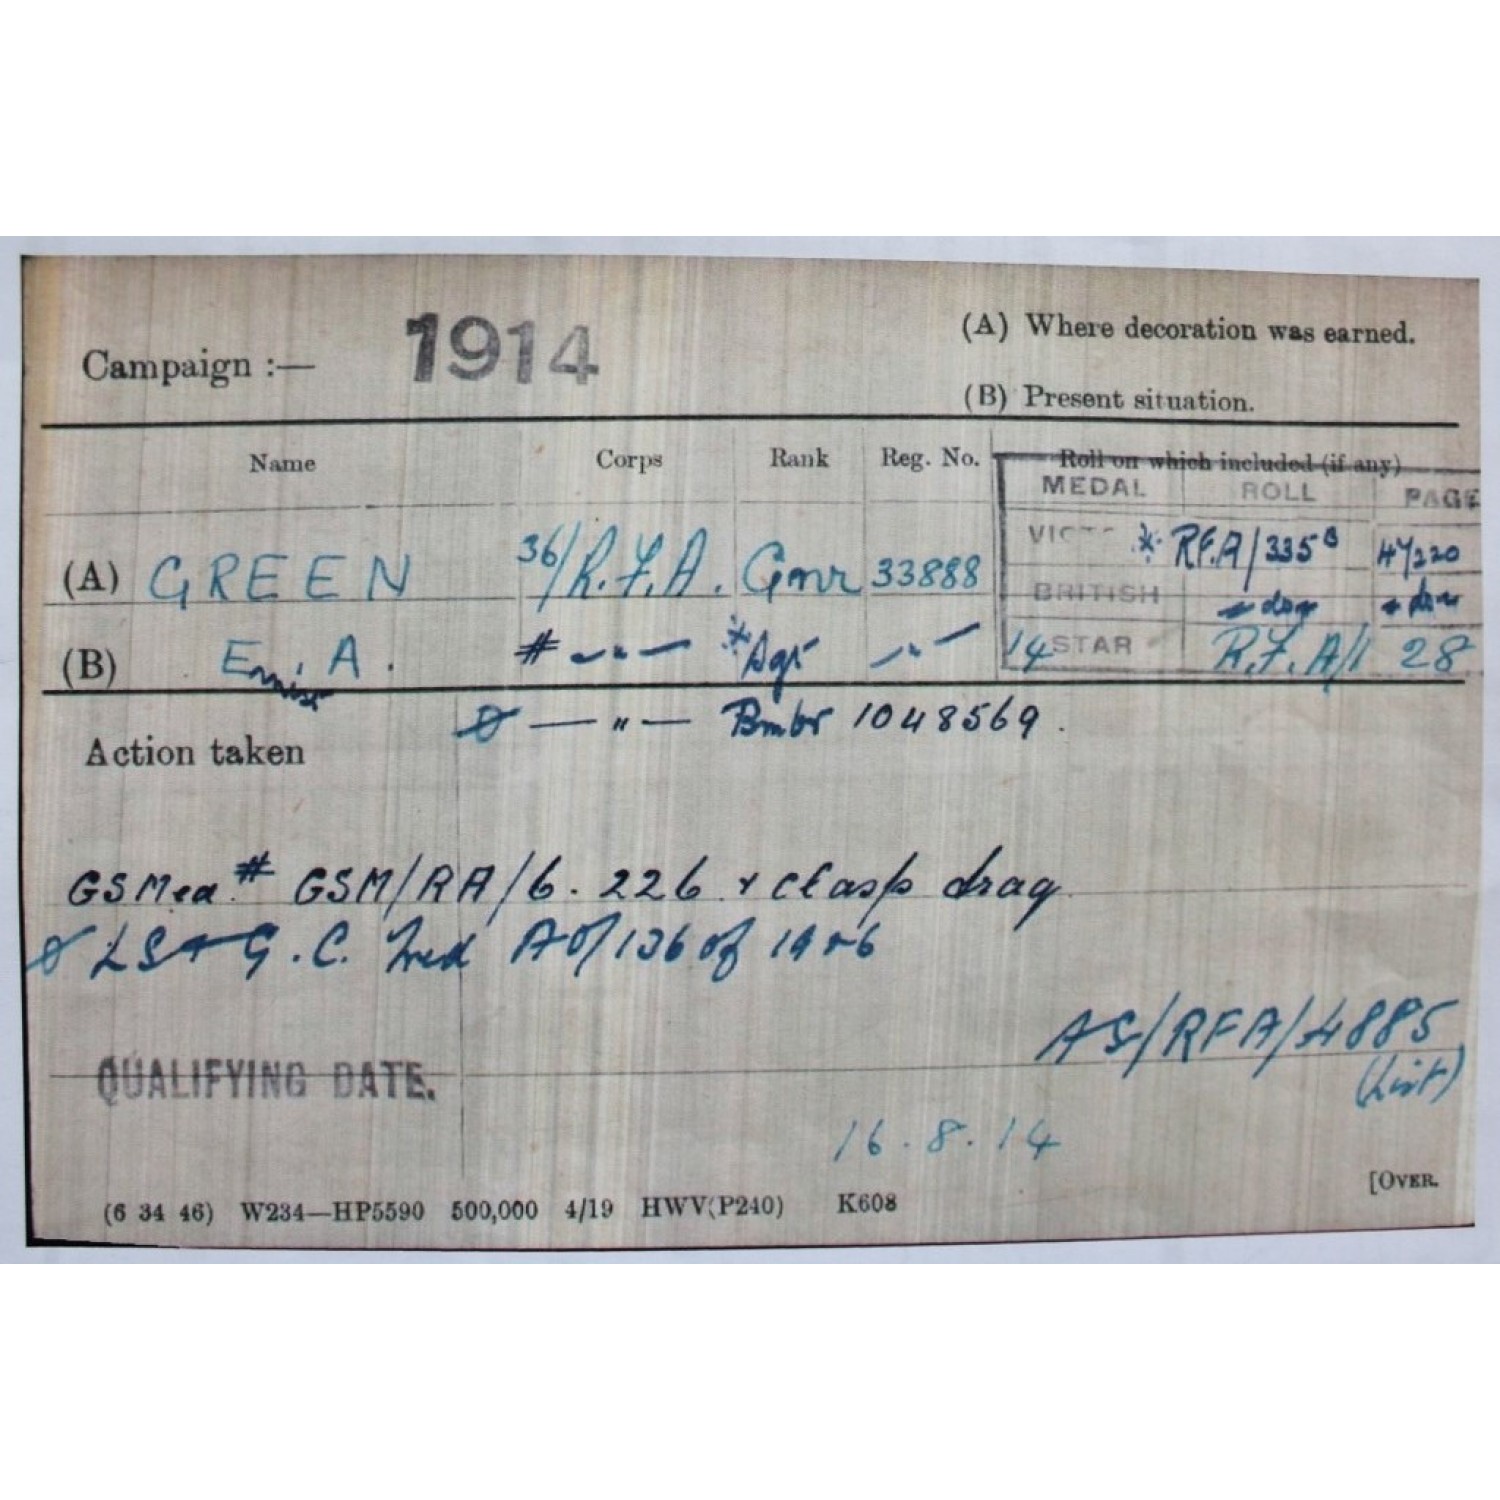 Campaign :— 1914
(A) Where decoration was earned.
(B) Present situation.
Name Corps Rank Reg. No. Roll on which included (if any)
MEDAL ROLL PAGE
(A) GREEN 36/R.F.A. Gnr 33888
VICT * RFA/335B 47220
BRITISH - do - - do -
(B) E. A. # — " — * Sgt — " —
14 STAR R.F.A/1 28
Ø — " — Bmbr 1048569.
Action taken
GSMed # GSM/RA/6. 226 + clasp Iraq
Ø LS + G.C. Med AO/136 of 1926
AS/RFA/4885
(List)
QUALIFYING DATE.
16.8.14
[OVER.
(6 34 46) W234—HP5590 500,000 4/19 HWV(P240) K608